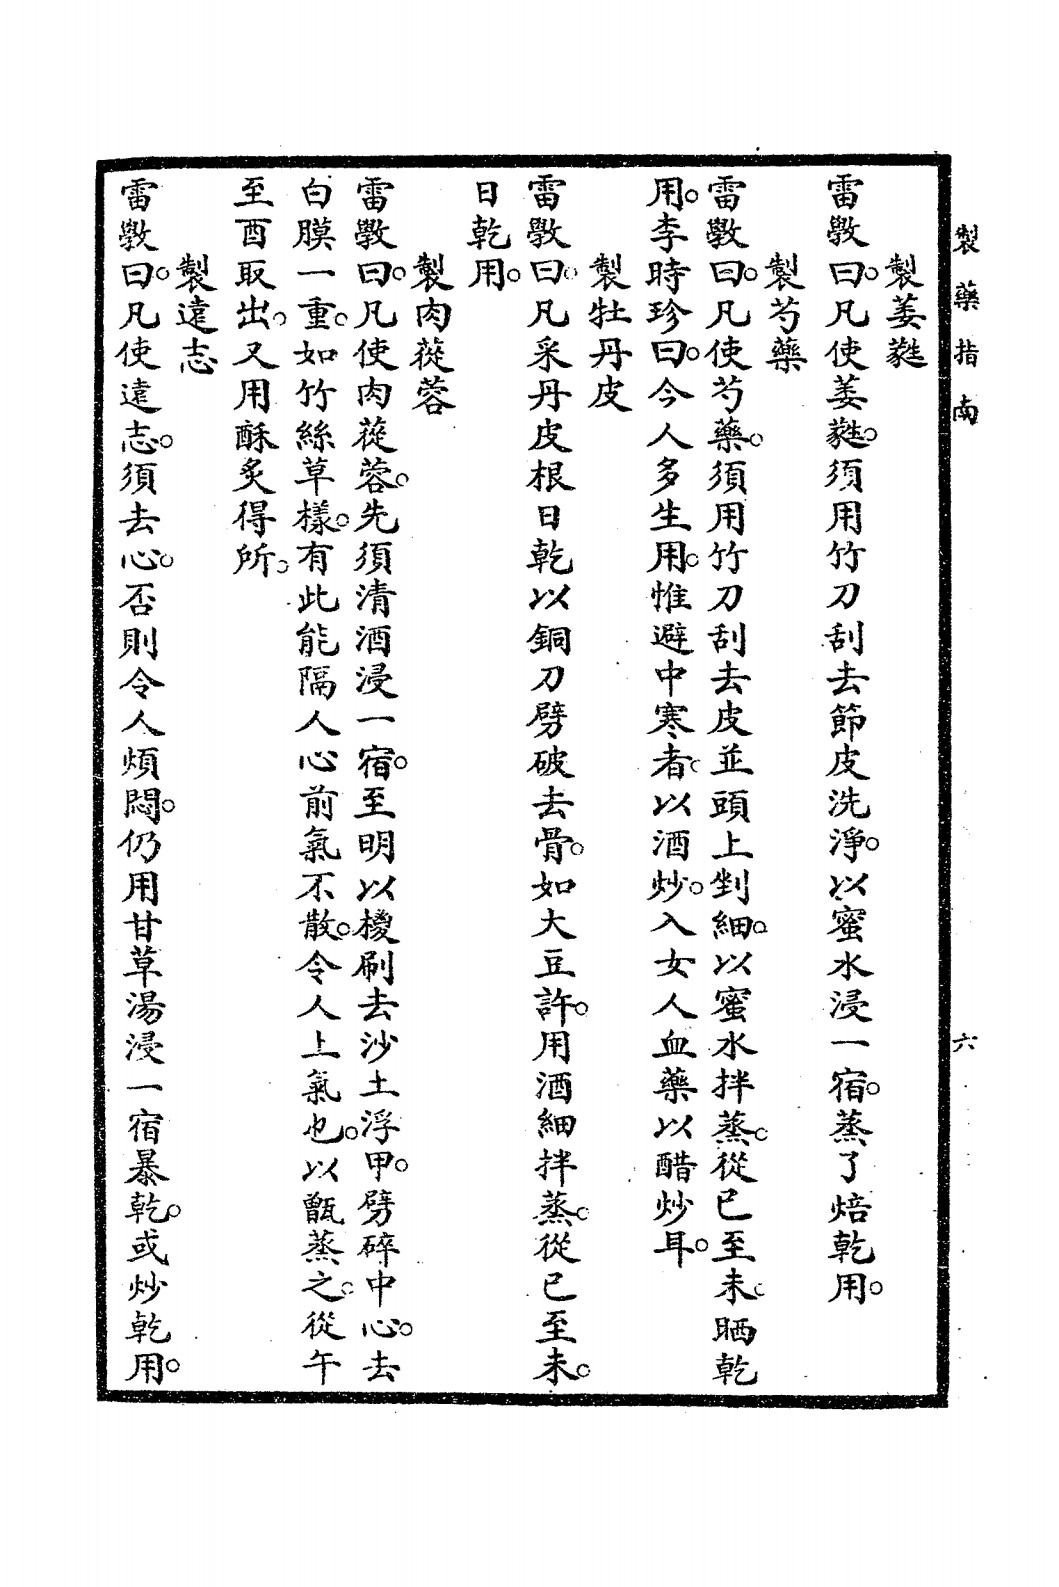 製藥指南
六
製萎蕤
雷斅曰。凡使萎蕤。須用竹刀刮去節皮洗淨。以蜜水浸一宿。蒸了焙乾用。
製芍藥
雷斅曰。凡使芍藥。須用竹刀刮去皮並頭上剉細。以蜜水拌蒸。從巳至未。晒乾
用。李時珍曰。今人多生用。惟避中寒者。以酒炒。入女人血藥以醋炒耳。
製牡丹皮
雷斅曰。凡采丹皮根日乾以銅刀劈破去骨。如大豆許。用酒細拌蒸。從巳至未。
日乾用。
製肉蓯蓉
雷斅曰。凡使肉蓯蓉。先須清酒浸一宿。至明以椶刷去沙土浮甲。劈碎中心。去
白膜一重。如竹絲草樣。有此能隔人心前氣不散。令人上氣也。以甑蒸之。從午
至酉取出。又用酥炙得所。
製遠志
雷斅曰。凡使遠志。須去心。否則令人煩悶。仍用甘草湯浸一宿暴乾。或炒乾用。